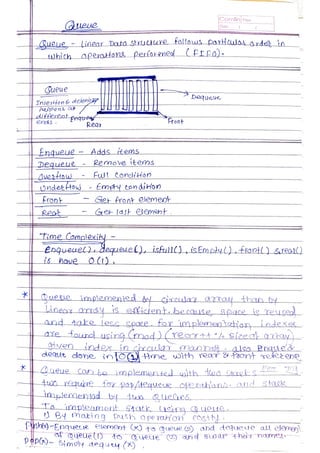 Queue
Queue - Linear Data structure follows particular order in
which operations performed (FIFO).
Queue
Insertion & deletion
happens at
different
ends.
Enqueue
Dequeue
Rear
Front
Enqueue - Adds items
Dequeue - Remove items
Overflow - Full Condition
Underflow - Empty Condition
Front - Get front element
Rear - Get last element.
Time Complexity -
Enqueue(), dequeue(), isfull(), isEmpty(), front() & rear()
is have O(1).
* Queue implemented by circular array than by
linear array is efficient, because, space is reused
and take less space. for implementation, indexes
are found using (mod) (rear + 1 % size of array)
given index in circular manner, also Enque &
deque done in O(1) time with rear & front
* Queue can be implemented with two stacks
two require for pop/dequeue operations. and stack
implemented by two queues.
To implement stack using Queue.
1) By making push operation costly.
Push(x) - Enqueue element (x) to queue (2) and dequeue all element
of queue (1) to queue (2) and swap their names.
Pop(x) - Simply deque (x).